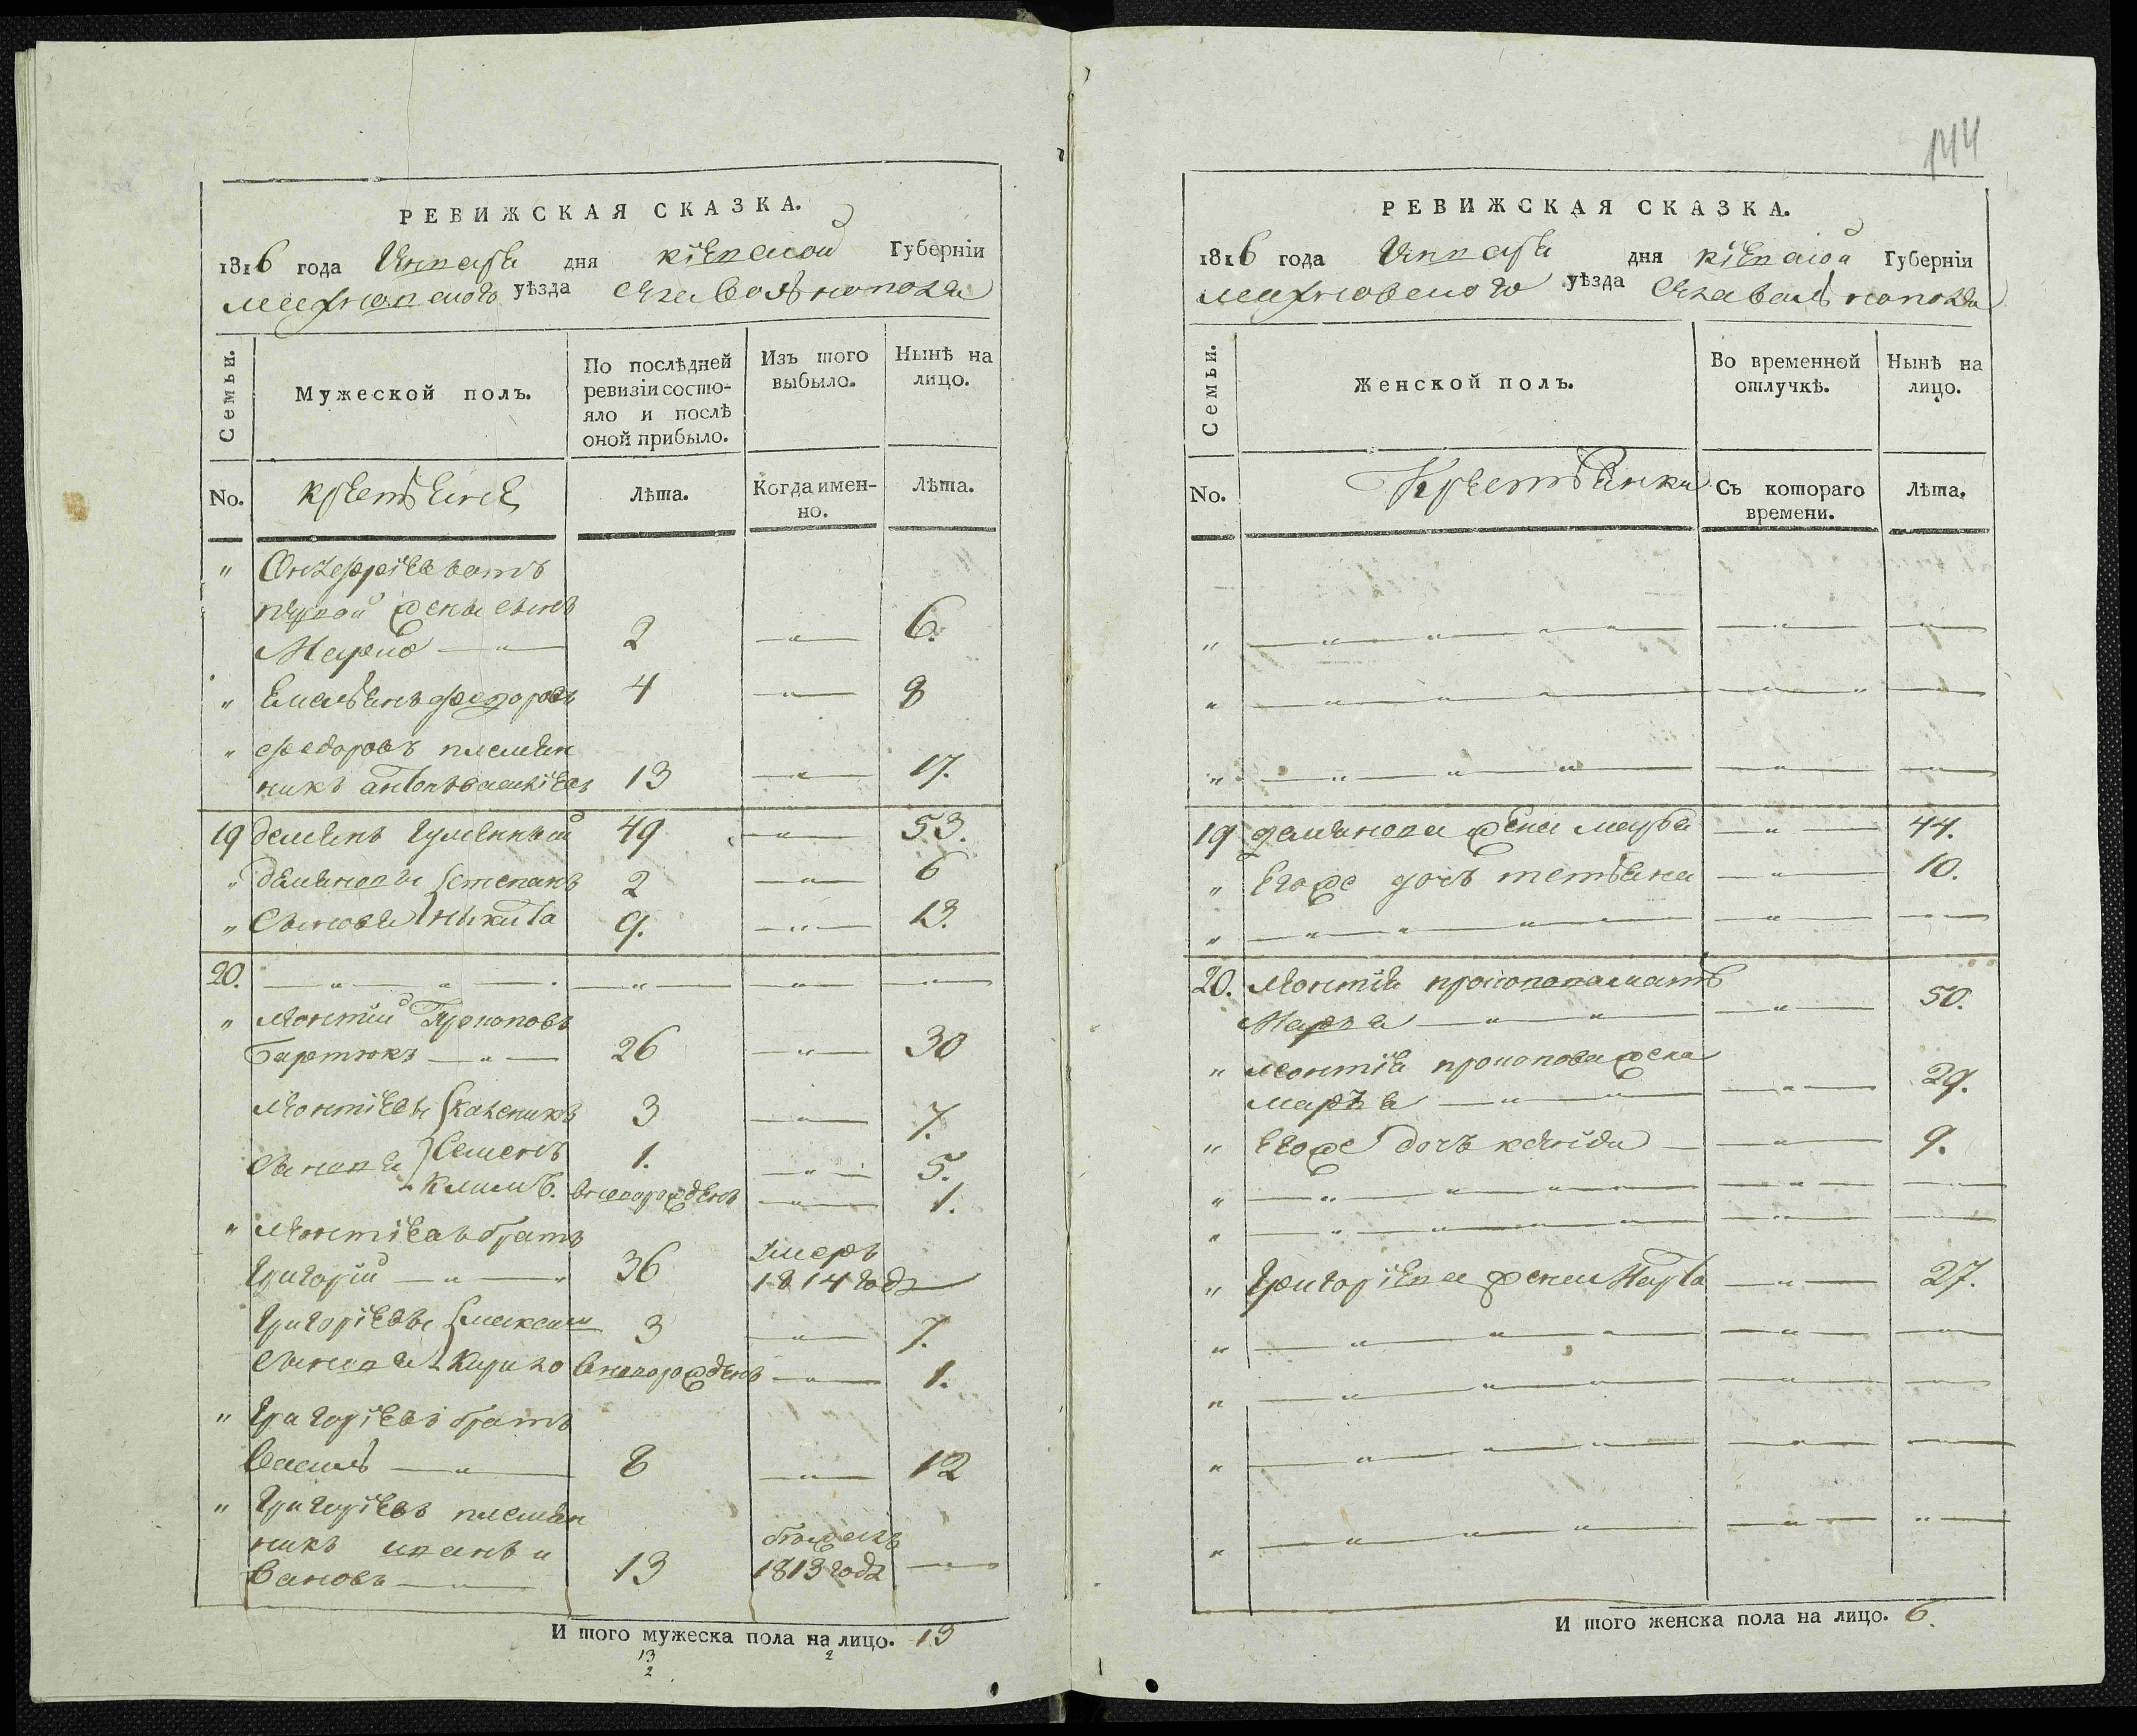 144
РЕВИЖСКАЯ СКАЗКА.
1816 года Генваря дня Кіевской Губерніи
Махновского уѣзда
Семьи.
Мужеской полъ.
По послѣдней ревизіи состояло и послѣ оной прибыло.
Изъ того выбыло.
Нынѣ на лицо.
No. крестьяне Лѣта. Когда именно. Лѣта.
"
первой жены сынъ
Марко 2 6.
" Емельянъ Федоровъ 4 8
" Федоровъ племян
никъ антонъ 13 17.
19 демянъ Гуменный 49 53.
" демяновы степанъ 2 6
" Сыновья никита 9. 13.
20.
" Леонтий Прокоповъ
Бартюкъ 26 30
Леонтіевы каленикъ 3 7.
Сыновья Семенъ 1. 5.
Климъ. вноворожденъ 1.
" Леонтіевъ братъ
Григорій 36 умеръ 1814 года
Григоріевы максим 3 7.
Сыновья Кирило вноворожденъ 1.
" Григоріевъ братъ
Василь 8 12
" Григоріевъ племян
никъ иванъ и
вановъ 13 бежалъ 1813 года
И того мужеска пола на лицо. 13
13 2
2
РЕВИЖСКАЯ СКАЗКА.
1816 года Генваря дня Кіевской Губерніи
Махновского уѣзда
Семьи.
Женской полъ.
Во временной отлучкѣ.
Нынѣ на лицо.
No. Крестьянки Съ котораго времени. Лѣта.
19 демянова жена марья 44.
" Егоже дочь татьяна 10.
20. Леонтія прокопова мать
Марья 50.
" Леонтія прокопова жена
марья 29.
" Егоже дочь 9.
" Григоріева жена Марта 27.
И того женска пола на лицо. 6.